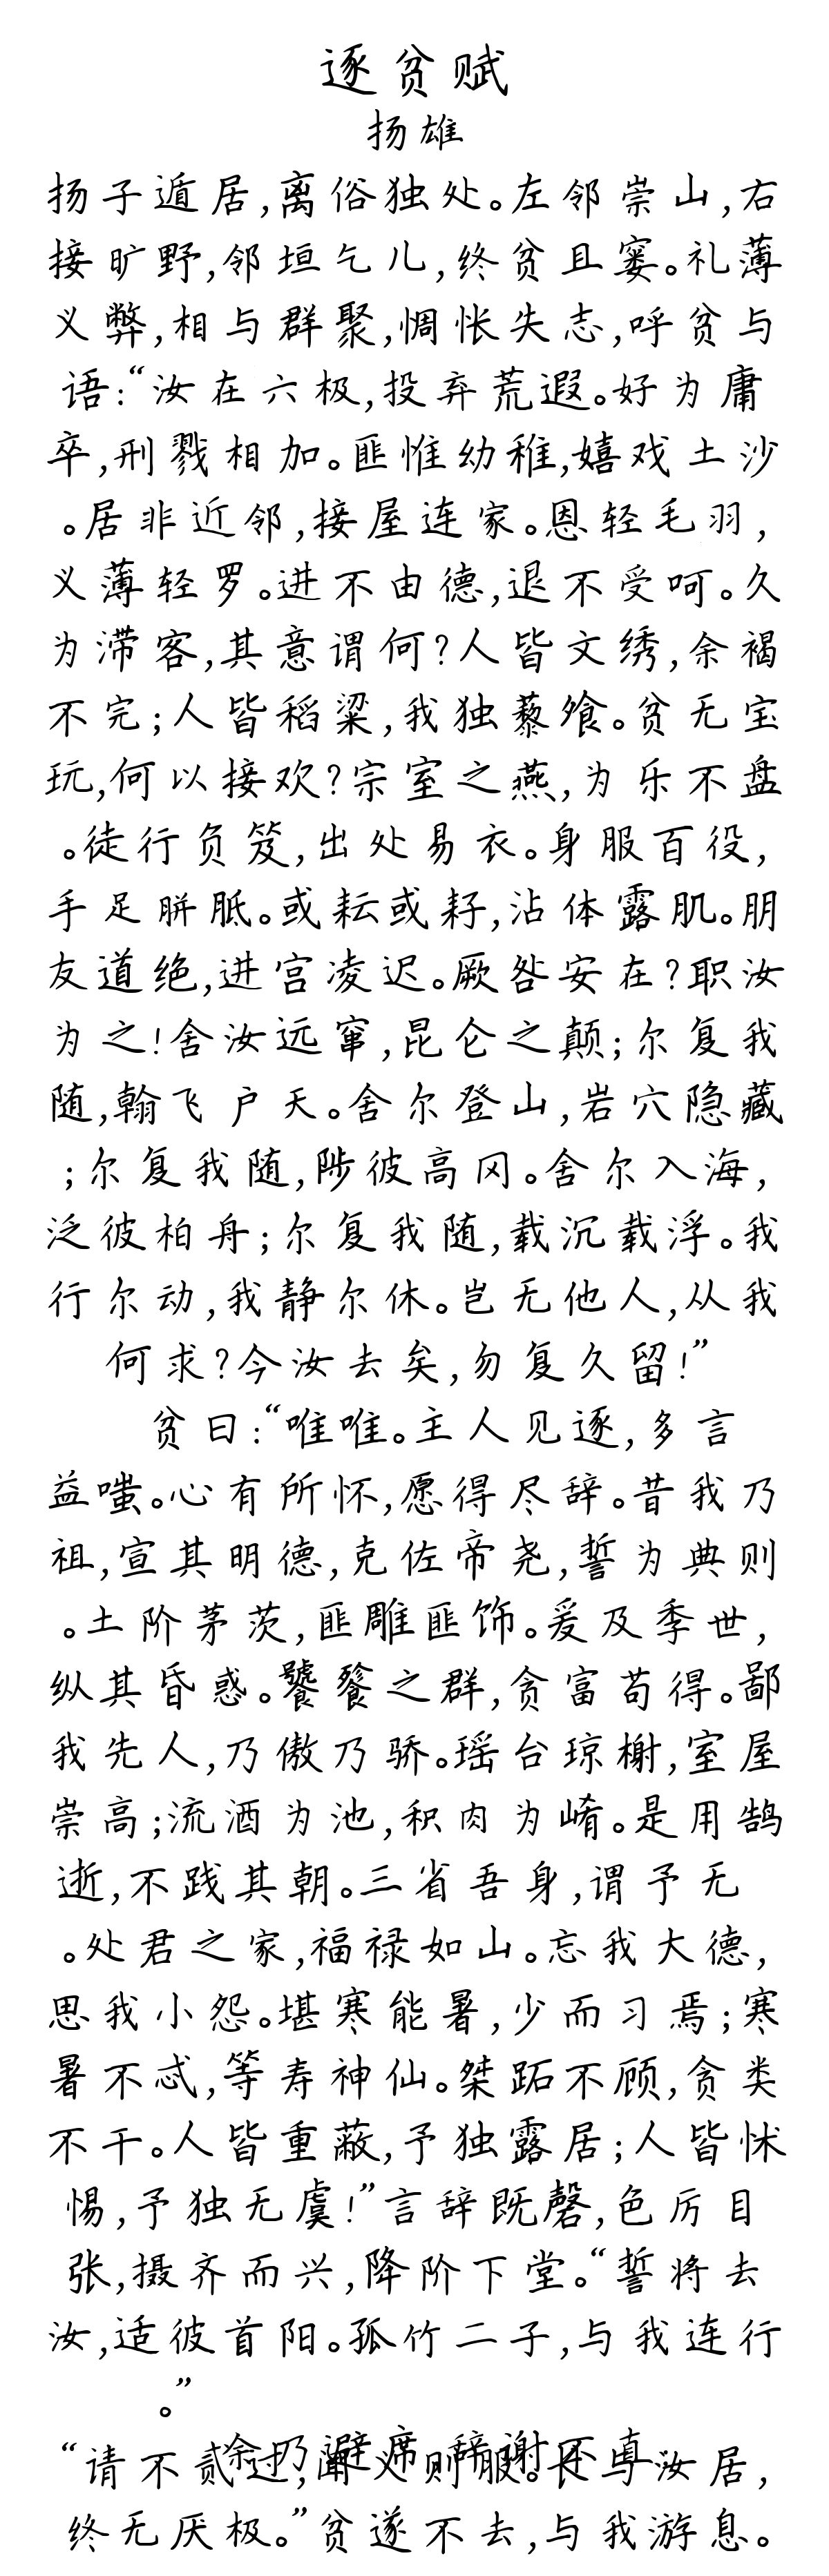 逐贫赋
扬雄
扬子遁居,离俗独处。左邻崇山,右
接旷野,邻垣乞儿,终贫且窭。礼薄
义弊,相与群聚,惆怅失志,呼贫与
语:“汝在六极,投弃荒遐。好为庸
卒,刑戮相加。匪惟幼稚,嬉戏土沙
。居非近邻,接屋连家。恩轻毛羽,
义薄轻罗。进不由德,退不受呵。久
为滞客,其意谓何?人皆文绣,余褐
不完;人皆稻粱,我独藜飧。贫无宝
玩,何以接欢?宗室之燕,为乐不盘
。徒行负笈,出处易衣。身服百役,
手足胼胝。或耘或耔,沾体露肌。朋
友道绝,进宫凌迟。厥咎安在?职汝
为之!舍汝远窜,昆仑之颠;尔复我
随,翰飞户天。舍尔登山,岩穴隐藏
;尔复我随,陟彼高冈。舍尔入海,
泛彼柏舟;尔复我随,载沉载浮。我
行尔动,我静尔休。岂无他人,从我
何求?今汝去矣,勿复久留!”
贫曰:“唯唯。主人见逐,多言
益嗤。心有所怀,愿得尽辞。昔我乃
祖,宣其明德,克佐帝尧,誓为典则
。土阶茅茨,匪雕匪饰。爰及季世,
纵其昏惑。饕餮之群,贪富苟得。鄙
我先人,乃傲乃骄。瑶台琼榭,室屋
崇高;流酒为池,积肉为崤。是用鹄
逝,不践其朝。三省吾身,谓予无
。处君之家,福禄如山。忘我大德,
思我小怨。堪寒能暑,少而习焉;寒
暑不忒,等寿神仙。桀跖不顾,贪类
不干。人皆重蔽,予独露居;人皆怵
惕,予独无虞!”言辞既磬,色厉目
张,摄齐而兴,降阶下堂。“誓将去
汝,适彼首阳。孤竹二子,与我连行
。”
余乃避席,辞谢不直:
“请不贰过,闻义则服。长与汝居,
终无厌极。”贫遂不去,与我游息。